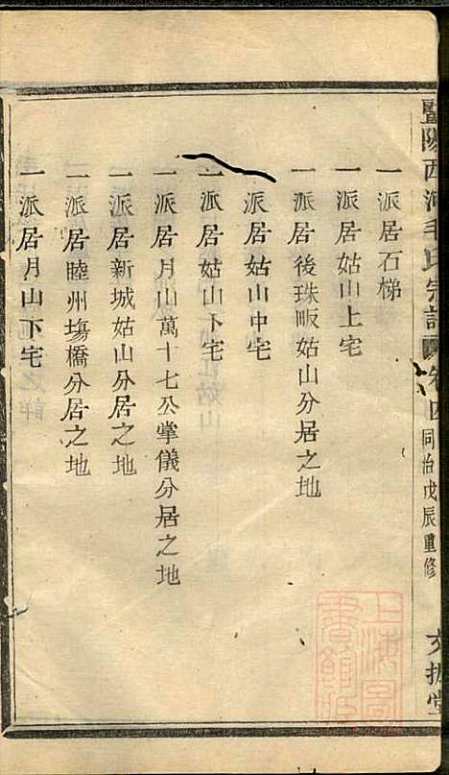 暨陽西河毛氏宗譜
卷四
同治戊辰重修
一派居石梯
一派居姑山上宅
一派居後珠畈姑山分居之地
一派居姑山中宅
一派居姑山下宅
一派居月山萬十七公掌儀分居之地
一派居新城姑山分居之地
一派居睦州塲橋分居之地
一派居月山下宅